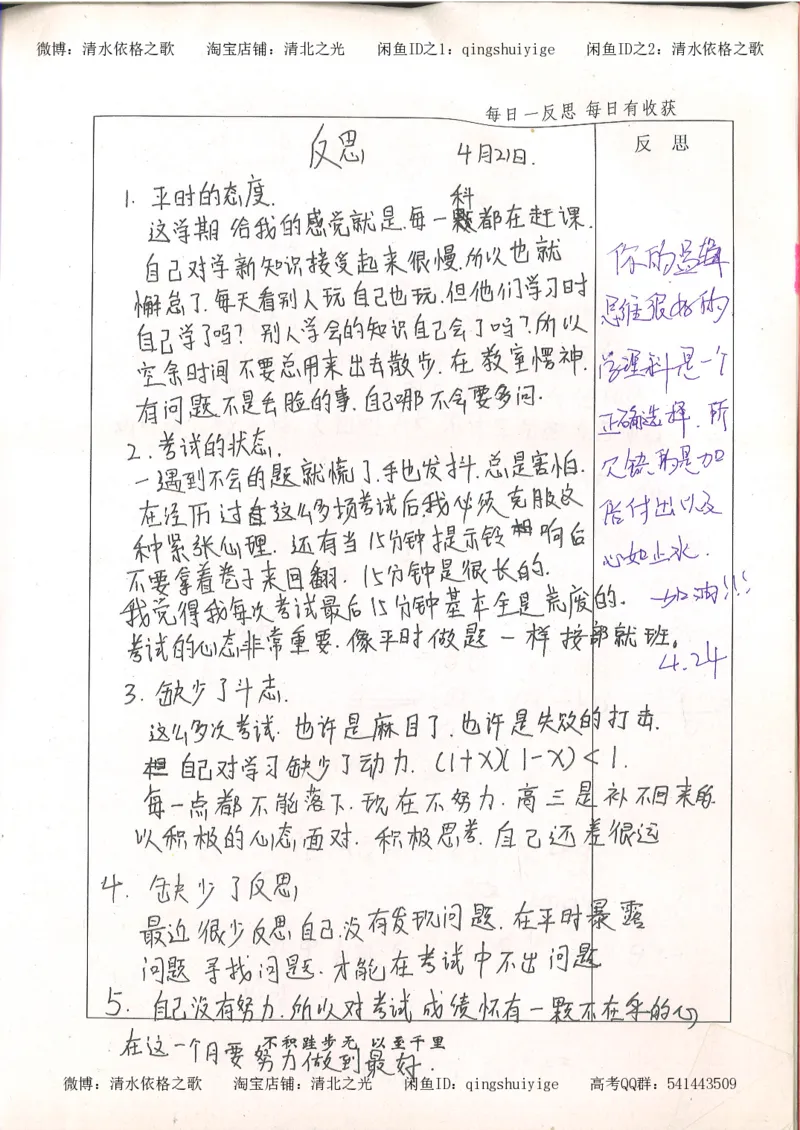 微博：清水依格之歌 淘宝店铺：清北之光 闲鱼ID之1：qingshuiyige 闲鱼ID之2：清水依格之歌
每日一反思 每日有收获
反思 4月21日.
反 思
1. 平时的态度.
科
这学期 给我的感觉就是.每一颗都在赶课.
自己对学新知识接受起来很慢.所以也就
懈怠了.每天看别人玩 自己也玩.但他们学习时
自己学了吗？ 别人学会的知识自己会了吗？所以
空余时间 不要总用来出去散步.在教室愣神.
有问题 不是丢脸的事.自己哪不会要多问.
2.考试的状态.
一遇到不会的题就慌了.手也发抖.总是害怕.
在经历过这么多场考试后.我必须克服这
种紧张心理. 还有当15分钟提示铃响后
不要拿着卷子来回翻. 15分钟是很长的.
我觉得我每次考试最后15分钟基本全是荒废的.
考试的心态非常重要.像平时做题 一样按部就班。
3. 缺少了斗志.
这么多次考试. 也许是麻目了.也许是失败的打击.
自己对学习缺少了动力. (1+x)(1-x)<1.
每一点都不能落下.现在不努力.高三是补不回来的.
以积极的心态面对. 积极思考.自己还差很远
4. 缺少了反思
最近很少反思自己.没有发现问题.在平时暴露
问题 寻找问题.才能在考试中不出问题
5. 自己没有努力.所以对考试成绩怀有一颗不在乎的心
不积跬步无 以至千里
在这一个月要努力做到最好.
你的逻辑
思维很好的
学理科是一个
正确选择.所
欠缺的是加
倍付出以及
心如止水.
—加油!!!
4.24
微博：清水依格之歌 淘宝店铺：清北之光 闲鱼ID：qingshuiyige 高考QQ群：541443509